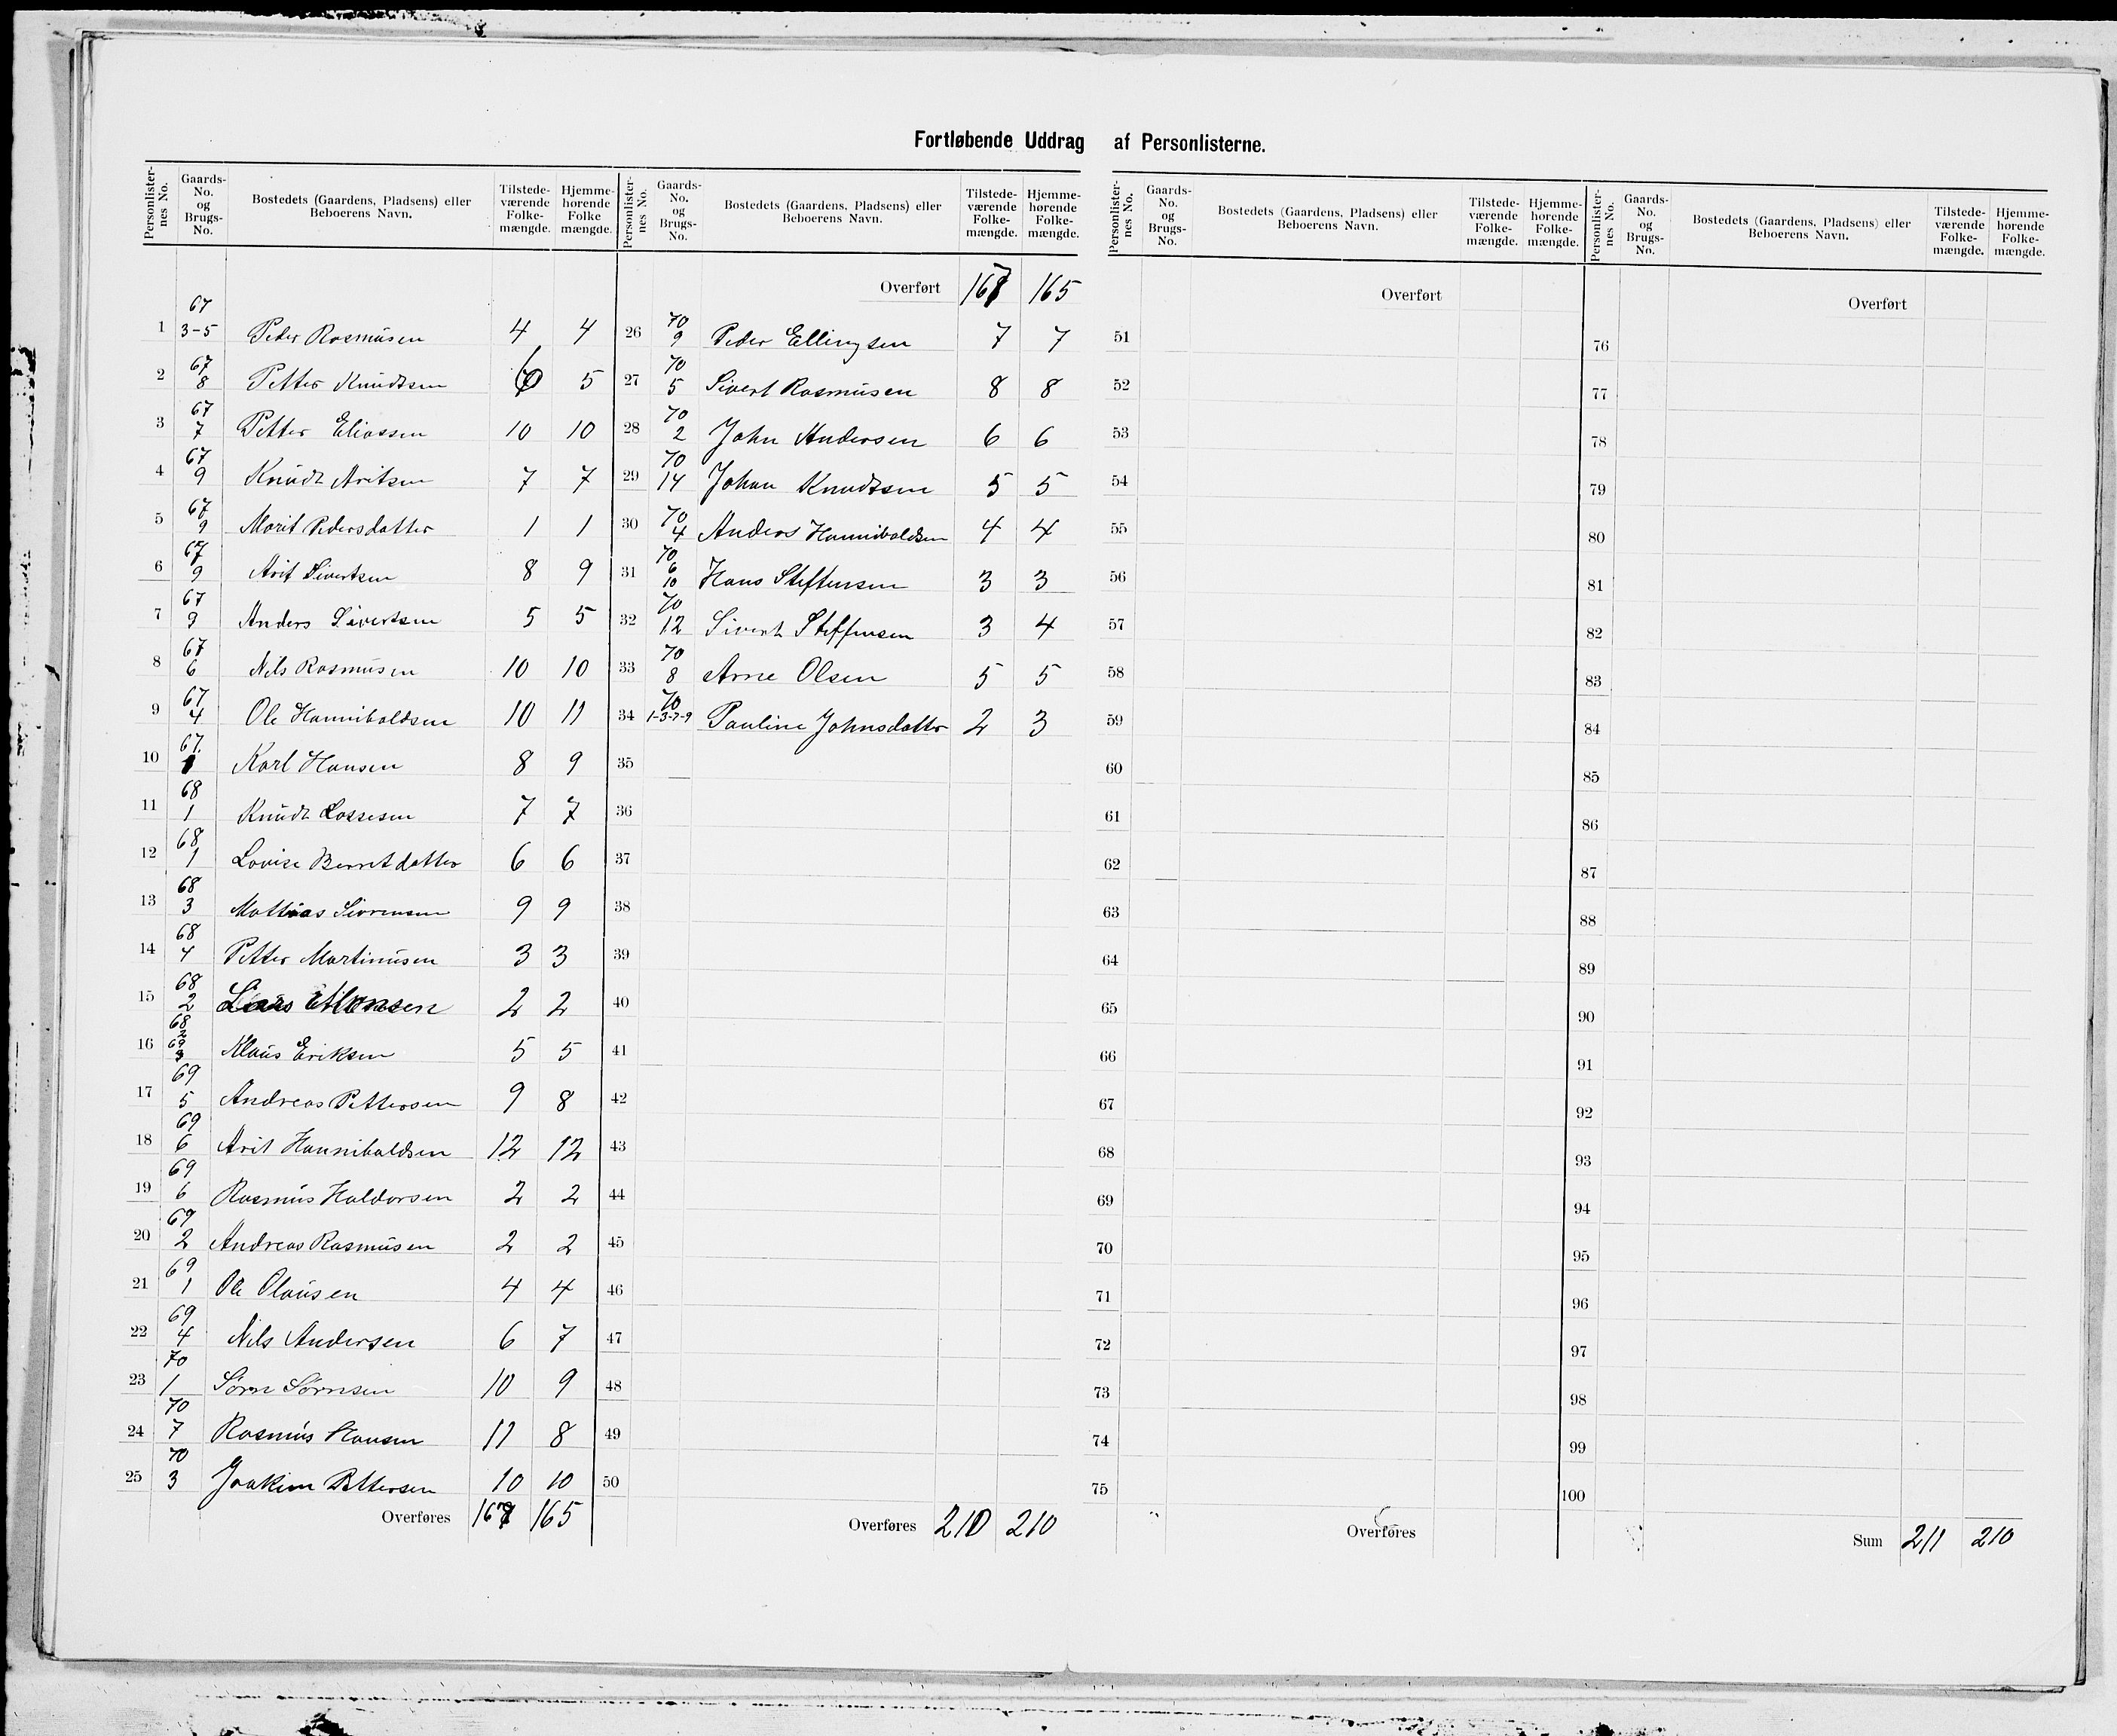 Fortløbende Uddrag af Personlisterne.
Personlisternes No. | Gaards-No. og Brugs-No. | Bostedets (Gaardens, Pladsens) eller Beboerens Navn. | Tilstedeværende Folkemængde. | Hjemmehørende Folkemængde.
1 | 67 3-5 | Peder Rasmusen | 4 | 4
2 | 67 8 | Petter Knudtsen | 6 | 5
3 | 67 7 | Petter Eliassen | 10 | 10
4 | 67 9 | Knudt Aritsen | 7 | 7
5 | 67 9 | Marit Pedersdatter | 1 | 1
6 | 67 9 | Arit Sivertsen | 8 | 9
7 | 67 9 | Anders Sivertsen | 5 | 5
8 | 67 6 | Nils Rasmusen | 10 | 10
9 | 67 4 | Ole Hannibaldsen | 10 | 11
10 | 67 1 | Karl Hansen | 8 | 9
11 | 68 1 | Knudt Lassesen | 7 | 7
12 | 68 1 | Lovise Berretdatter | 6 | 6
13 | 68 3 | Mattias Sivrensen | 9 | 9
14 | 68 4 | Petter Martinusen | 3 | 3
15 | 68 2 | Lars | 2 | 2
16 | 68 2 69 3 | Klaus Eriksen | 5 | 5
17 | 69 5 | Andreas Pettersen | 9 | 8
18 | 69 6 | Arit Hannibaldsen | 12 | 12
19 | 69 6 | Rasmus Haldorsen | 2 | 2
20 | 69 2 | Andreas Rasmusen | 2 | 2
21 | 69 1 | Ole Olausen | 4 | 4
22 | 69 4 | Nils Andersen | 6 | 7
23 | 70 1 | Sørn Sørnsen | 10 | 9
24 | 70 7 | Rasmus Hansen | 11 | 8
25 | 70 3 | Joakim Pettersen | 10 | 10
Overføres | 167 | 165
Personlisternes No. | Gaards-No. og Brugs-No. | Bostedets (Gaardens, Pladsens) eller Beboerens Navn. | Tilstedeværende Folkemængde. | Hjemmehørende Folkemængde.
Overført | 167 | 165
26 | 70 9 | Peder Ellingsen | 7 | 7
27 | 70 5 | Sivert Rasmusen | 8 | 8
28 | 70 2 | John Andersen | 6 | 6
29 | 70 14 | Johan Knudtsen | 5 | 5
30 | 70 4 | Anders Hannibaldsen | 4 | 4
31 | 70 6 10 | Hans Steffensen | 3 | 3
32 | 70 12 | Sivert Steffensen | 3 | 4
33 | 70 8 | Arne Olsen | 5 | 5
34 | 70 1-3-7-9 | Pauline Johnsdatter | 2 | 3
35
36
37
38
39
40
41
42
43
44
45
46
47
48
49
50
Overføres | 210 | 210
Personlisternes No. | Gaards-No. og Brugs-No. | Bostedets (Gaardens, Pladsens) eller Beboerens Navn. | Tilstedeværende Folkemængde. | Hjemmehørende Folkemængde.
Overført
51
52
53
54
55
56
57
58
59
60
61
62
63
64
65
66
67
68
69
70
71
72
73
74
75
Overføres
Personlisternes No. | Gaards-No. og Brugs-No. | Bostedets (Gaardens, Pladsens) eller Beboerens Navn. | Tilstedeværende Folkemængde. | Hjemmehørende Folkemængde.
Overført
76
77
78
79
80
81
82
83
84
85
86
87
88
89
90
91
92
93
94
95
96
97
98
99
100
Sum | 211 | 210